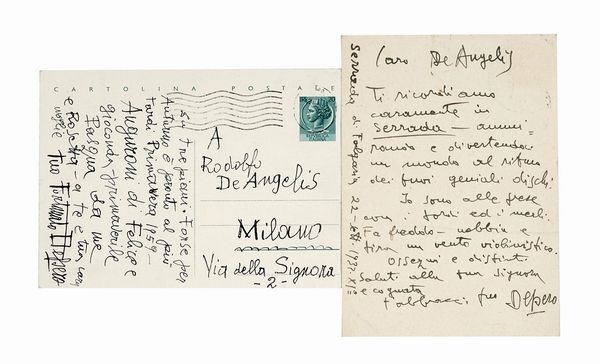 CARTOLINA POSTALE
in tre piani. Forse per
Autunno è pronto al più
tardi Primavera 1959 -
Auguroni di Felice e
gioconda-primaverile
Pasqua da me
e Rosetta - a te e tua cara
moglie tuo Fortunato Depero
A
Rodolfo
De Angelis
Milano
Via della Signora
- 2 -
Serrada di Folgaria 22 - 1932 - X
Caro De Angelis
Ti ricordiamo
caramente in
Serrada - ammi=
rando e divertendo
un mondo al ritmo
dei tuoi geniali dischi.
Io sono alle prese
con i tordi ed i merli.
Fa freddo - nebbia e
tira un vento violinistico.
Ossequi e distinti
saluti alla tua Signora
e cognata
t'abbraccio tuo Depero